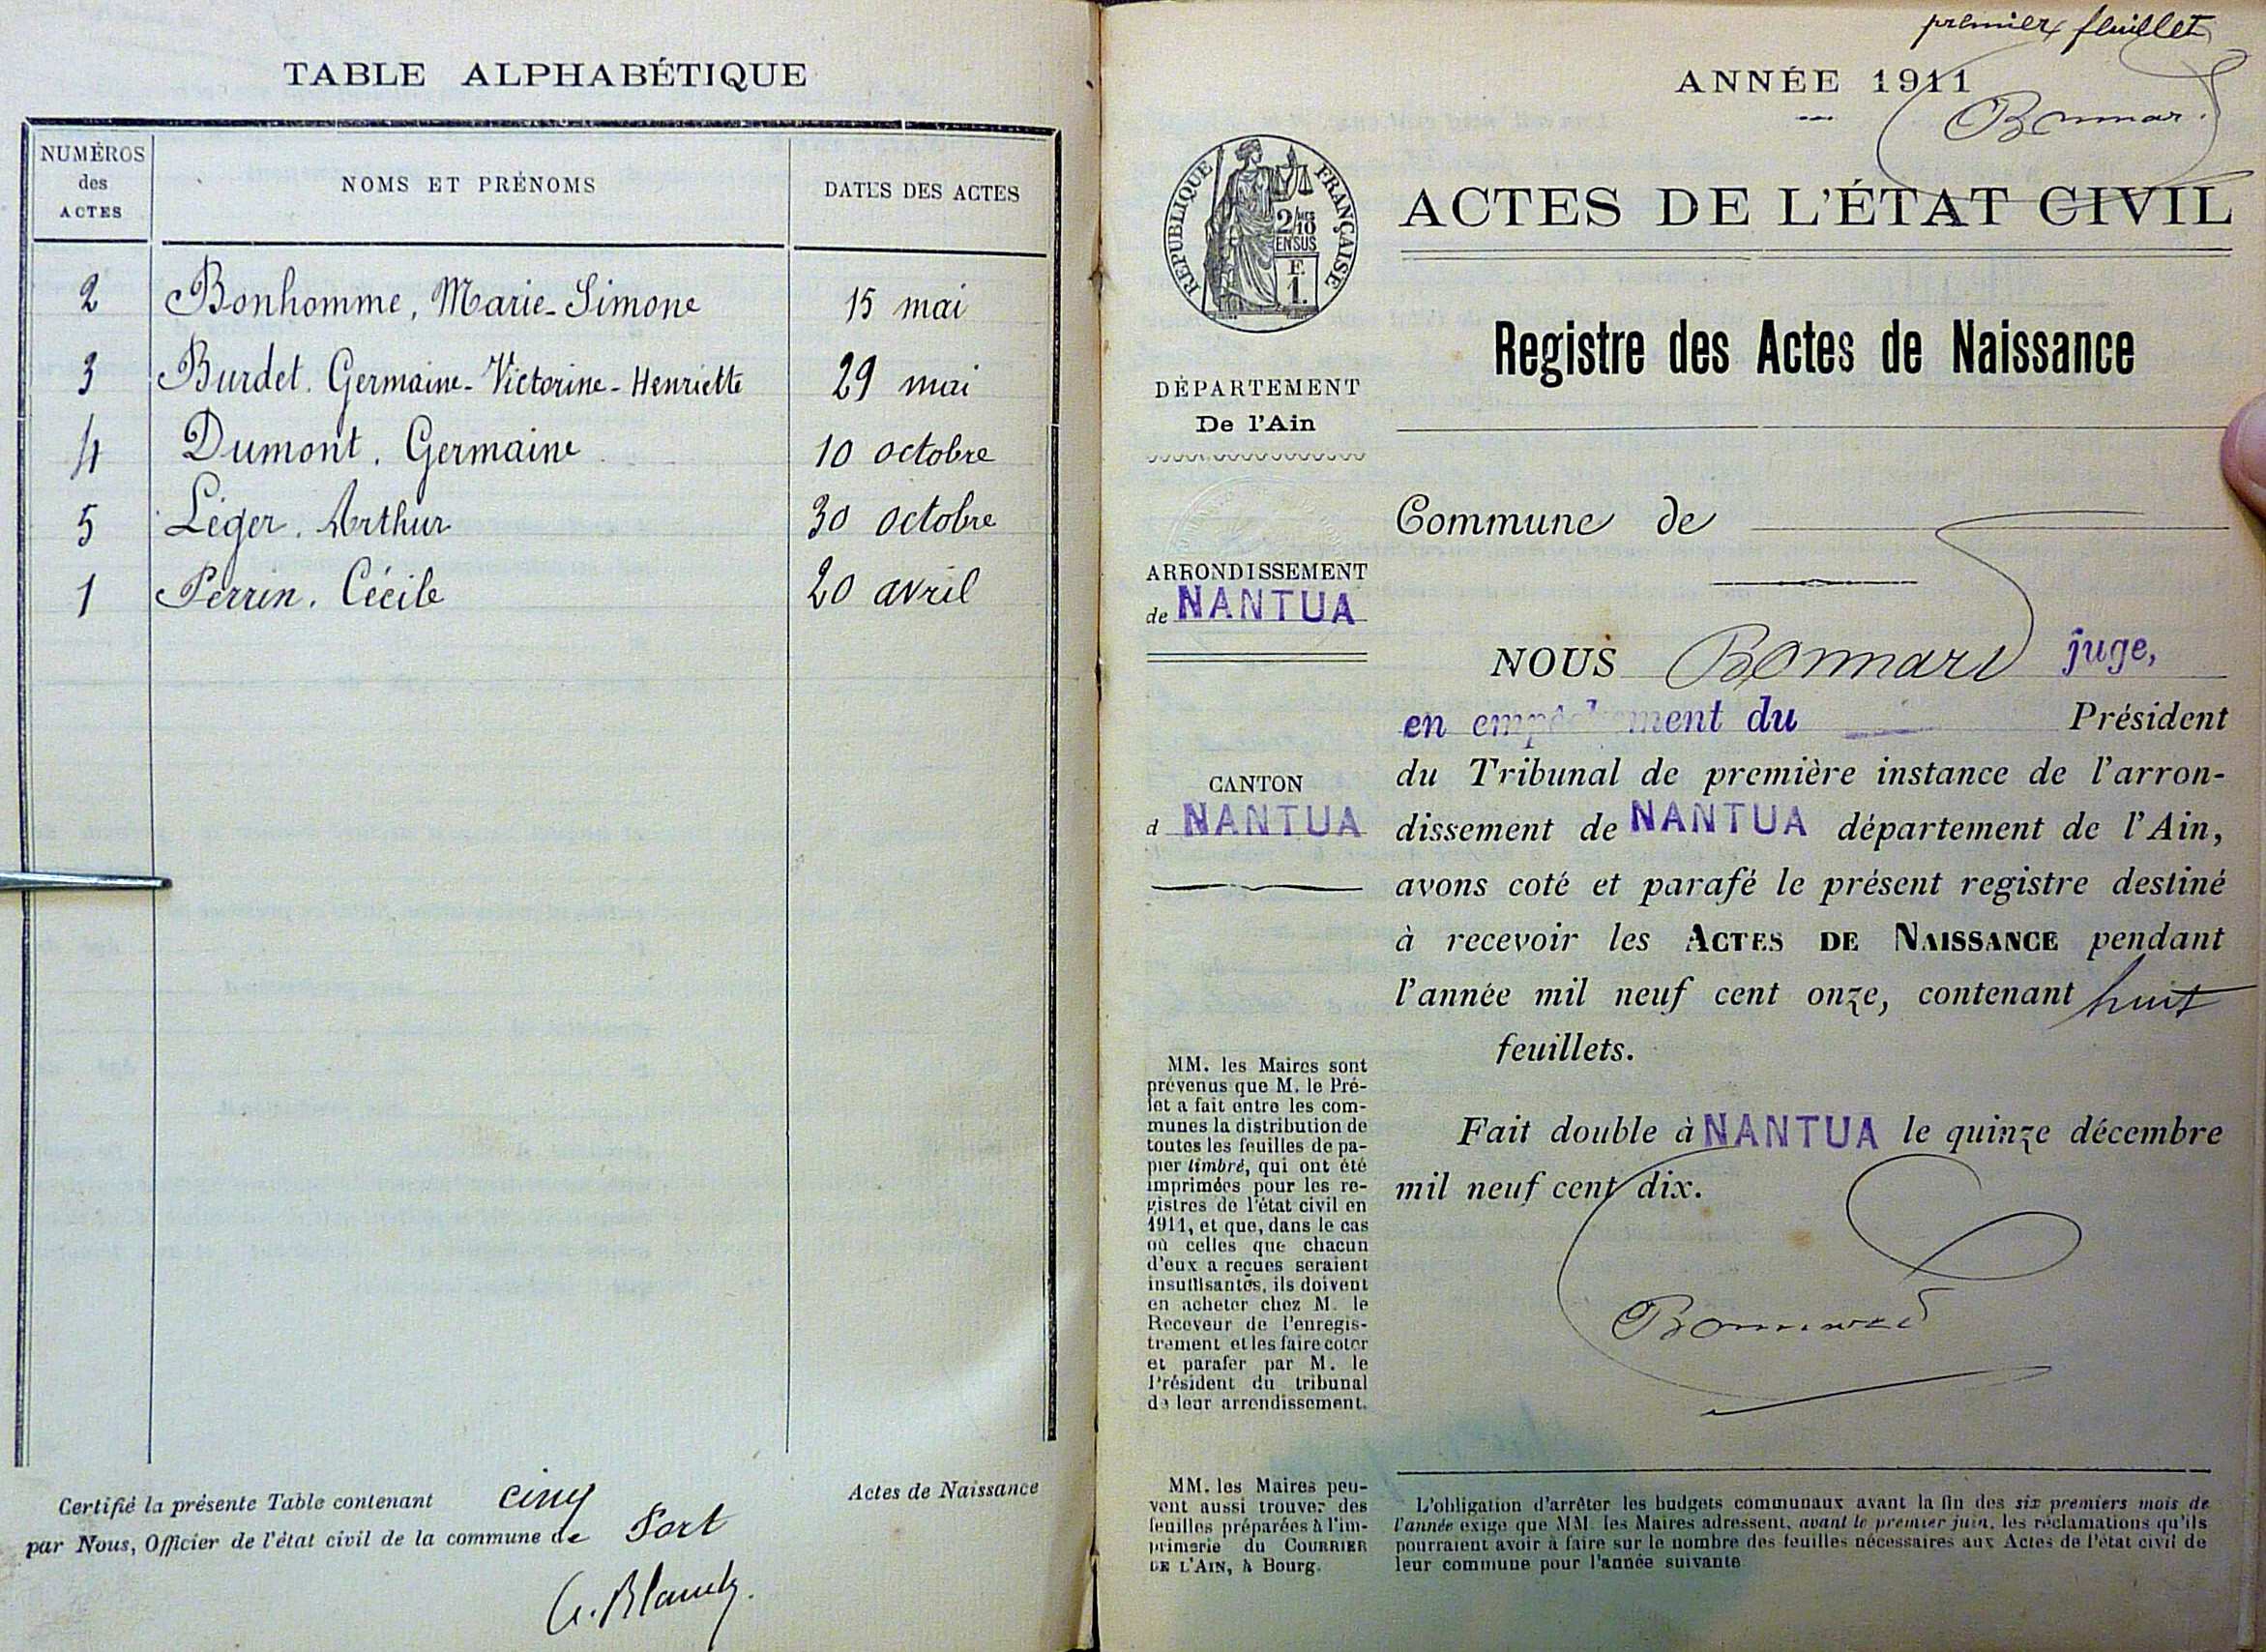 TABLE ALPHABÉTIQUE
NUMÉROS des ACTES
NOMS ET PRÉNOMS
DATES DES ACTES
2 Bonhomme, Marie-Simone 15 mai
3 Burdet. Germaine-Victorine-Henriette 29 mai
4 Dumont. Germaine 10 octobre
5 Léger. Arthur 30 octobre
1 Perrin. Cécile 20 avril
Certifié la présente Table contenant cinq Actes de Naissance
par Nous, Officier de l'état civil de la commune de Port
premier feuillet
ANNÉE 1911
Bonnard
RÉPUBLIQUE FRANÇAISE
2/10
EN SUS
F.
1.
ACTES DE L'ÉTAT CIVIL
Registre des Actes de Naissance
DÉPARTEMENT
De l'Ain
ARRONDISSEMENT
de NANTUA
CANTON
d NANTUA
Commune de
NOUS Bonnard juge,
en empêchement du Président
du Tribunal de première instance de l'arron-
dissement de NANTUA département de l'Ain,
avons coté et parafé le présent registre destiné
à recevoir les ACTES DE NAISSANCE pendant
l'année mil neuf cent onze, contenant huit
feuillets.
Fait double à NANTUA le quinze décembre
mil neuf cent dix.
Bonnard
MM. les Maires sont
prévenus que M. le Pré-
fet a fait entre les com-
munes la distribution de
toutes les feuilles de pa-
pier timbré, qui ont été
imprimées pour les re-
gistres de l'état civil en
1911, et que, dans le cas
où celles que chacun
d'eux a reçues seraient
insuffisantes, ils doivent
en acheter chez M. le
Receveur de l'enregis-
trement et les faire coter
et parafer par M. le
Président du tribunal
de leur arrondissement.
MM. les Maires peu-
vent aussi trouver des
feuilles préparées à l'im-
primerie du COURRIER
DE L'AIN, à Bourg.
L'obligation d'arrêter les budgets communaux avant la fin des six premiers mois de
l'année exige que MM. les Maires adressent, avant le premier juin, les réclamations qu'ils
pourraient avoir à faire sur le nombre des feuilles nécessaires aux Actes de l'état civil de
leur commune pour l'année suivante